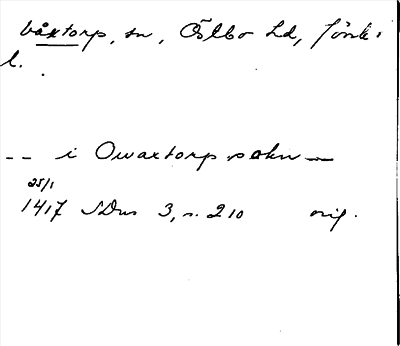 Våxtorp, sn, Östbo hd, Jönk.
l.
-- i Owaxtorp sokn —
25/1
1417 SDns 3, s. 210 orig.